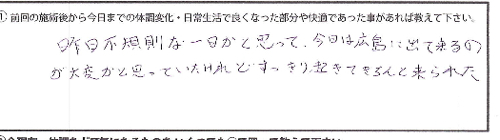 ① 前回の施術後から今日までの体調変化・日常生活で良くなった部分や快適であった事があれば教えて下さい。
昨日不規則な一日かと思って、今日は広島に出て来るの
が大変かと思っていたけれどすっきり起きてきちんと来られた